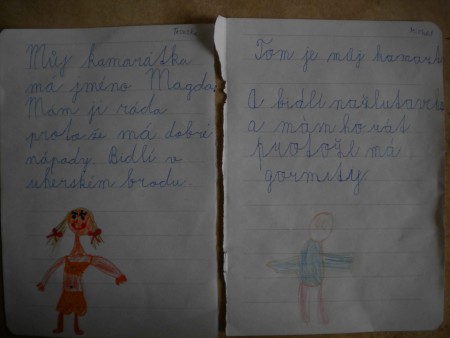 Můj kamarátka
má jméno Magda
Mám ji ráda
protože má dobré
nápady. Bidlí v
uherském brodu.
Tom je můj kamará
A bidlí
a mám ho rát
protože má
gormity